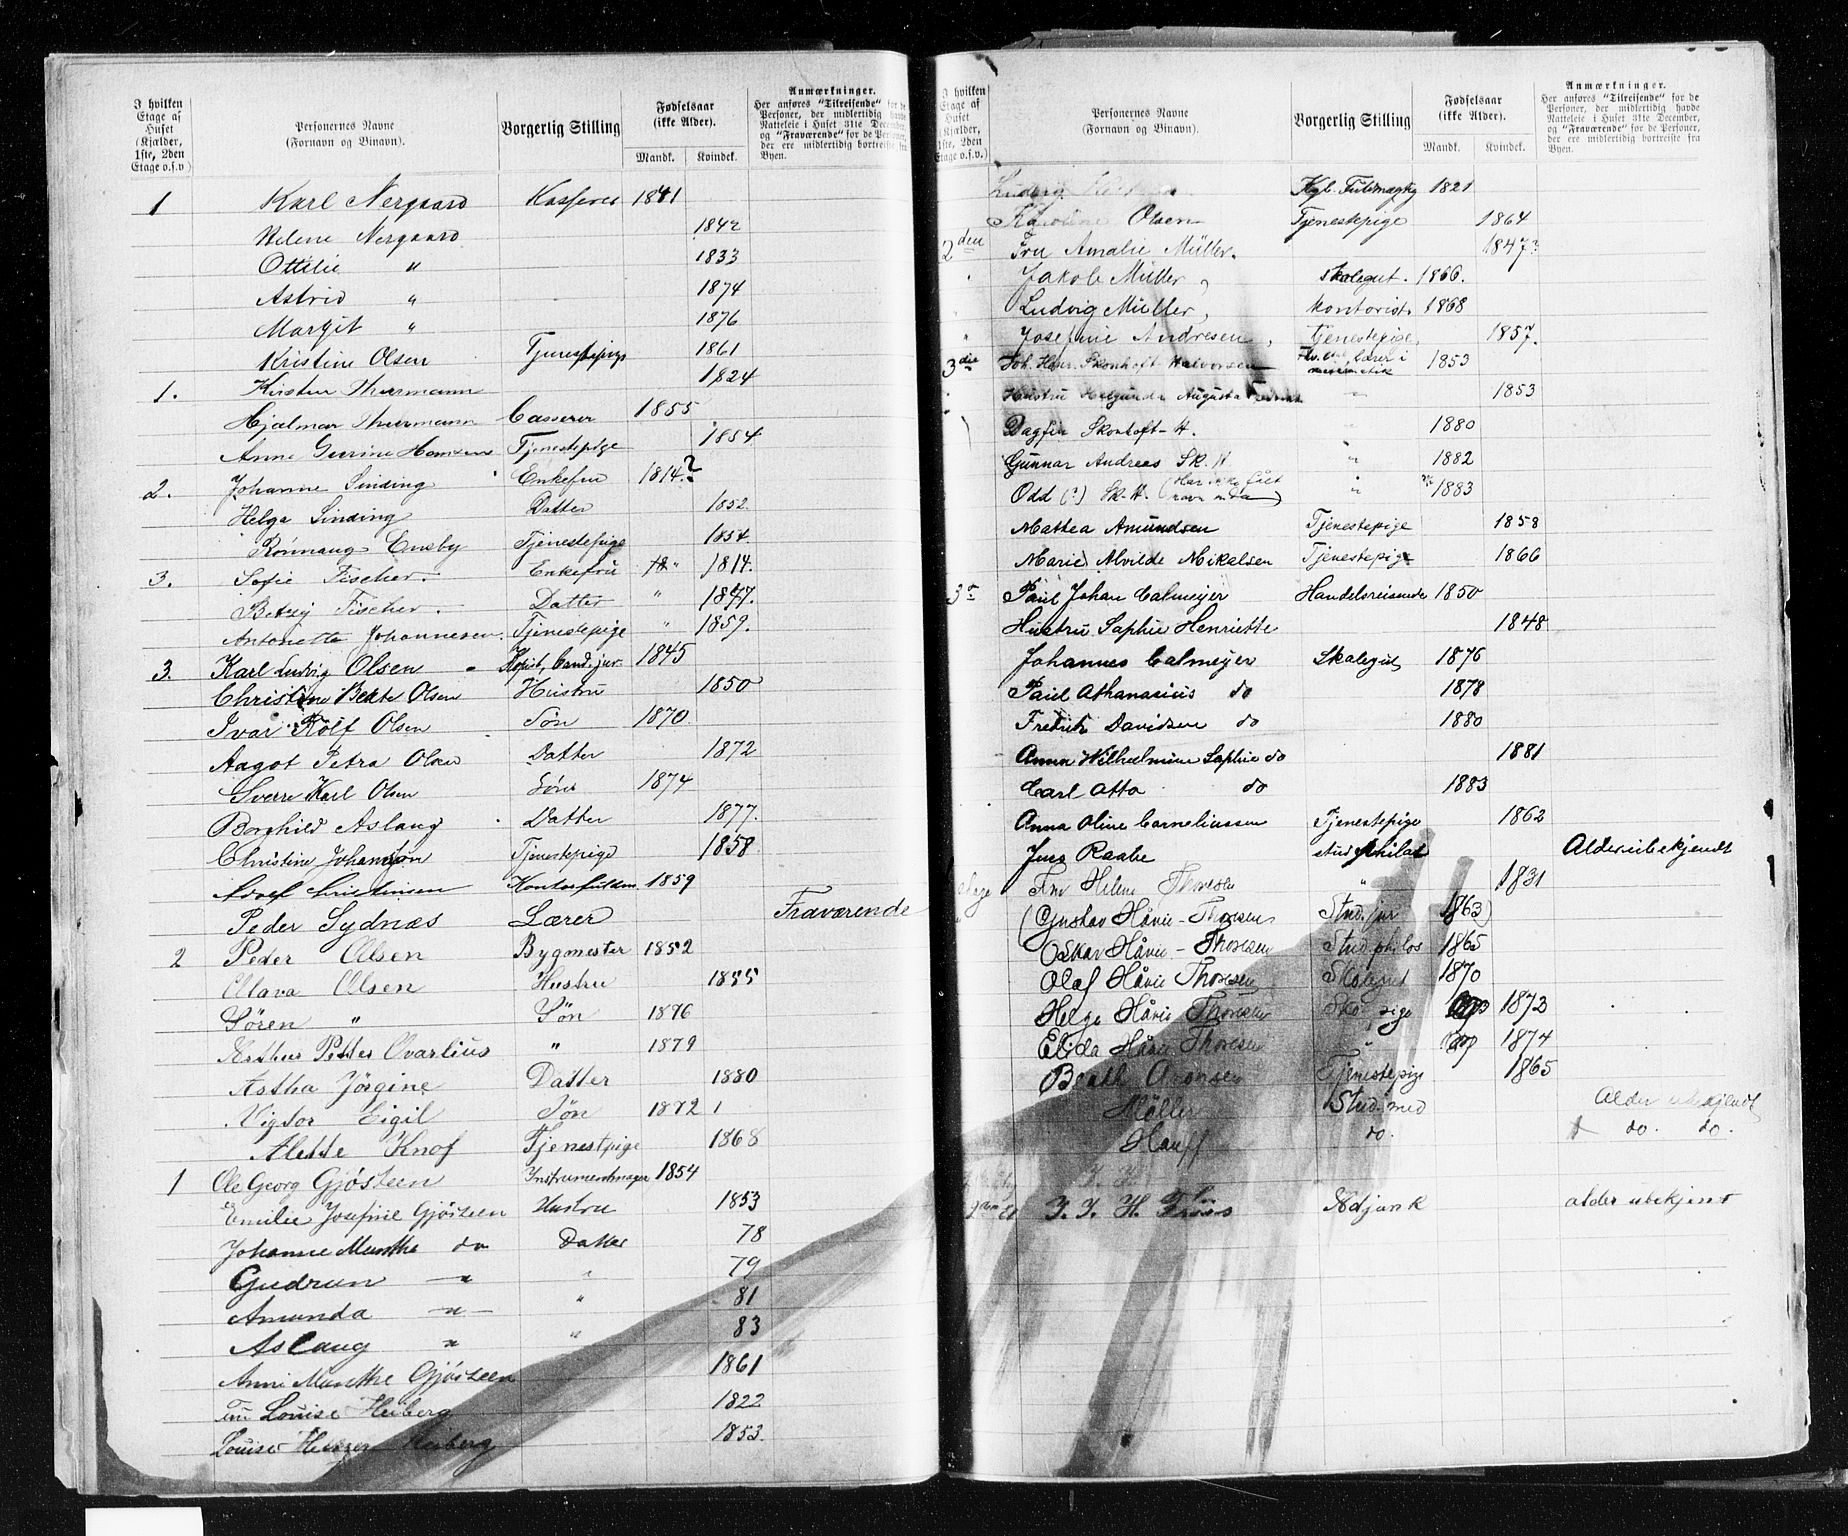 I hvilken Etage af Huset (Kjælder, 1ste, 2den Etage o.s.v)
Personernes Navne (Fornavn og Binavn).
Vorgerlig Stilling
Fødselsaar (ikke Alder).
Mandk. Kvindek.
Anmærkninger.
Her anføres "Tilreisende" for de Personer, der midlertidig havde Natteleie i Huset 31te December, og "Fraværende" for de Personer, der ere midlertidig bortreiste fra Byen.
1 Karl Nergaard Kasserer 1841
Helene Nergaard 1842
Ottilie " 1833
Astrid " 1874
Margit " 1876
Kristine Olsen Tjenestepige 1861
1. Kirsten Thurmann 1824
Hjalmar Thurmann Casserer 1855
Anne Gurine Hansen Tjenestepige 1854
2. Johanne Sinding Enkefru 1814?
Helga Sinding Datter 1852.
Rønnaug Eneby Tjenestepige 1854.
3. Sofie Fischer. Enkefru " 1814.
Betzy Fischer. Datter " 1847.
Antonette Johannesen. Tjenestepige " 1859.
3. Karl Ludvig Olsen Kopist, Cand. jur. 1845
Christine Beate Olsen Hustru 1850
Ivar Rolf Olsen Søn 1870.
Aagot Petra Olsen Datter 1872
Sverre Karl Olsen Søn 1874
Borghild Aslaug Datter 1877.
Christine Johansen Tjenestepige 1858.
Christensen Kontorfuldm. 1859
Peder Sydnæs Lærer Fraværende
2 Peder Olsen Bygmester 1852
Olava Olsen Hustru 1855
Sören " Søn 1876
Arthur Petter Ovarlius " 1879
Astha Jörgine Datter 1880
Vigdor Eigil Søn 1872 1
Alette Knof Tjenestpige 1868
1 Ole Georg Gjösteen Instrumentmager 1854
Emilie Josefine Gjösteen Hustru 1853
Johanne Munthe do Datter 78
Gudrun " " 79
Amunda " " 81
Aslaug " " 83
Anni Munthe Gjösteen 1861
Fru Louise Heiberg 1822
Louise Heiberg 1853.
I hvilken Etage af Huset (Kjælder, 1ste, 2den Etage o.s.v)
Personernes Navne (Fornavn og Binavn).
Vorgerlig Stilling
Fødselsaar (ikke Alder).
Mandk. Kvindek.
Anmærkninger.
Her anføres "Tilreisende" for de Personer, der midlertidig havde Natteleie i Huset 31te December, og "Fraværende" for de Personer, der ere midlertidig bortreiste fra Byen.
Ludvig Kgl. Fuldmægtig 1821
Karoline Olsen Tjenestepige 1864
2den Fru Amalie Müller. 1847?
Jakob Müller, Skolegut. 1866.
Ludvig Müller, kontorist. 1868
Josefine Andresen, Tjenestepige, 1857.
3die Joh. Henr. Skonhoft Halvorsen lærer i 1853
Hustru Helgunda Augusta " 1853
Dagfin Skonhoft-H. " 1880
Gunnar Andreas Sk. H " 1882
Odd (?) Sk-H. (Har ikke fået navn enda) " 1883
Mathea Amundsen Tjenestepige 1858
Marie Alvilde Mikelsen Tjenestepige 1866
3die Paul Johan Calmeyer Handelsreisende 1850
Hustru Sophie Henriette 1848
Johannes Calmeyer Skolegut 1876
Paul Athanasius do 1878
Fredrik Davidsen do 1880
Anna Wilhelmine Sophie do 1881
Carl Otto do 1883
Anna Oline Corneliussen Tjenestepige 1862
Jens Raabe stud philol Alder ubekjendt
Fru Helene Thoresen " 1831
(Gustav Håvie-Thoresen Stud. jur 1863)
Oskar Håvie-Thoresen Stud philos 1865
Olaf Håvie Thoresen Skolegut 1870
Helga Håvie Thoresen Skolepige 1873
Elida Håvie Thoresen " 1874
Berth Aronsen Tjenestepige 1865
Müller Stud. med Alder ubekjendt
Hauff do. do. do.
J. J. H. Friis Adjunk alder ubekjent